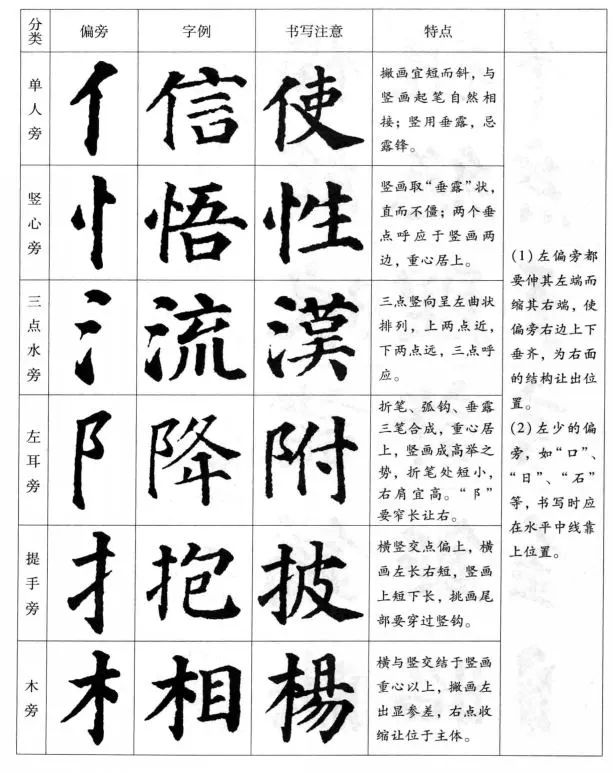 分类 偏旁 字例 书写注意 特点
单人旁 亻 信 使
撇画宜短而斜，与
竖画起笔自然相
接；竖用垂露，忌
露锋。
竖心旁 忄 悟 性
竖画取“垂露”状，
直而不僵；两个垂
点呼应于竖画两
边，重心居上。
三点水旁 氵 流 漢
三点竖向呈左曲状
排列，上两点近，
下两点远，三点呼
应。
左耳旁 阝 降 附
折笔、弧钩、垂露
三笔合成，重心居
上，竖画成高举之
势，折笔处短小，
右肩宜高。“阝”
要窄长让右。
提手旁 扌 抱 披
横竖交点偏上，横
画左长右短，竖画
上短下长，挑画尾
部要穿过竖钩。
木旁 木 相 楊
横与竖交结于竖画
重心以上，撇画左
出显参差，右点收
缩让位于主体。
(1)左偏旁都
要伸其左端而
缩其右端，使
偏旁右边上下
垂齐，为右面
的结构让出位
置。
(2)左少的偏
旁，如“口”、
“日”、“石”
等，书写时应
在水平中线靠
上位置。